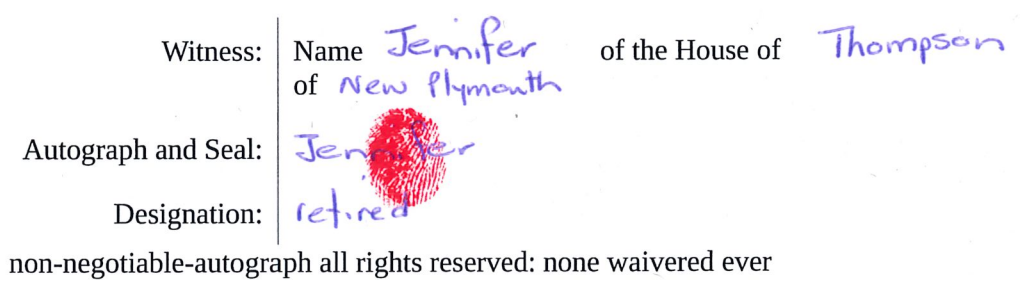 Witness: Name Jennifer of the House of Thompson
of New Plymouth
Autograph and Seal: Jennifer
Designation: retired
non-negotiable-autograph all rights reserved: none waivered ever